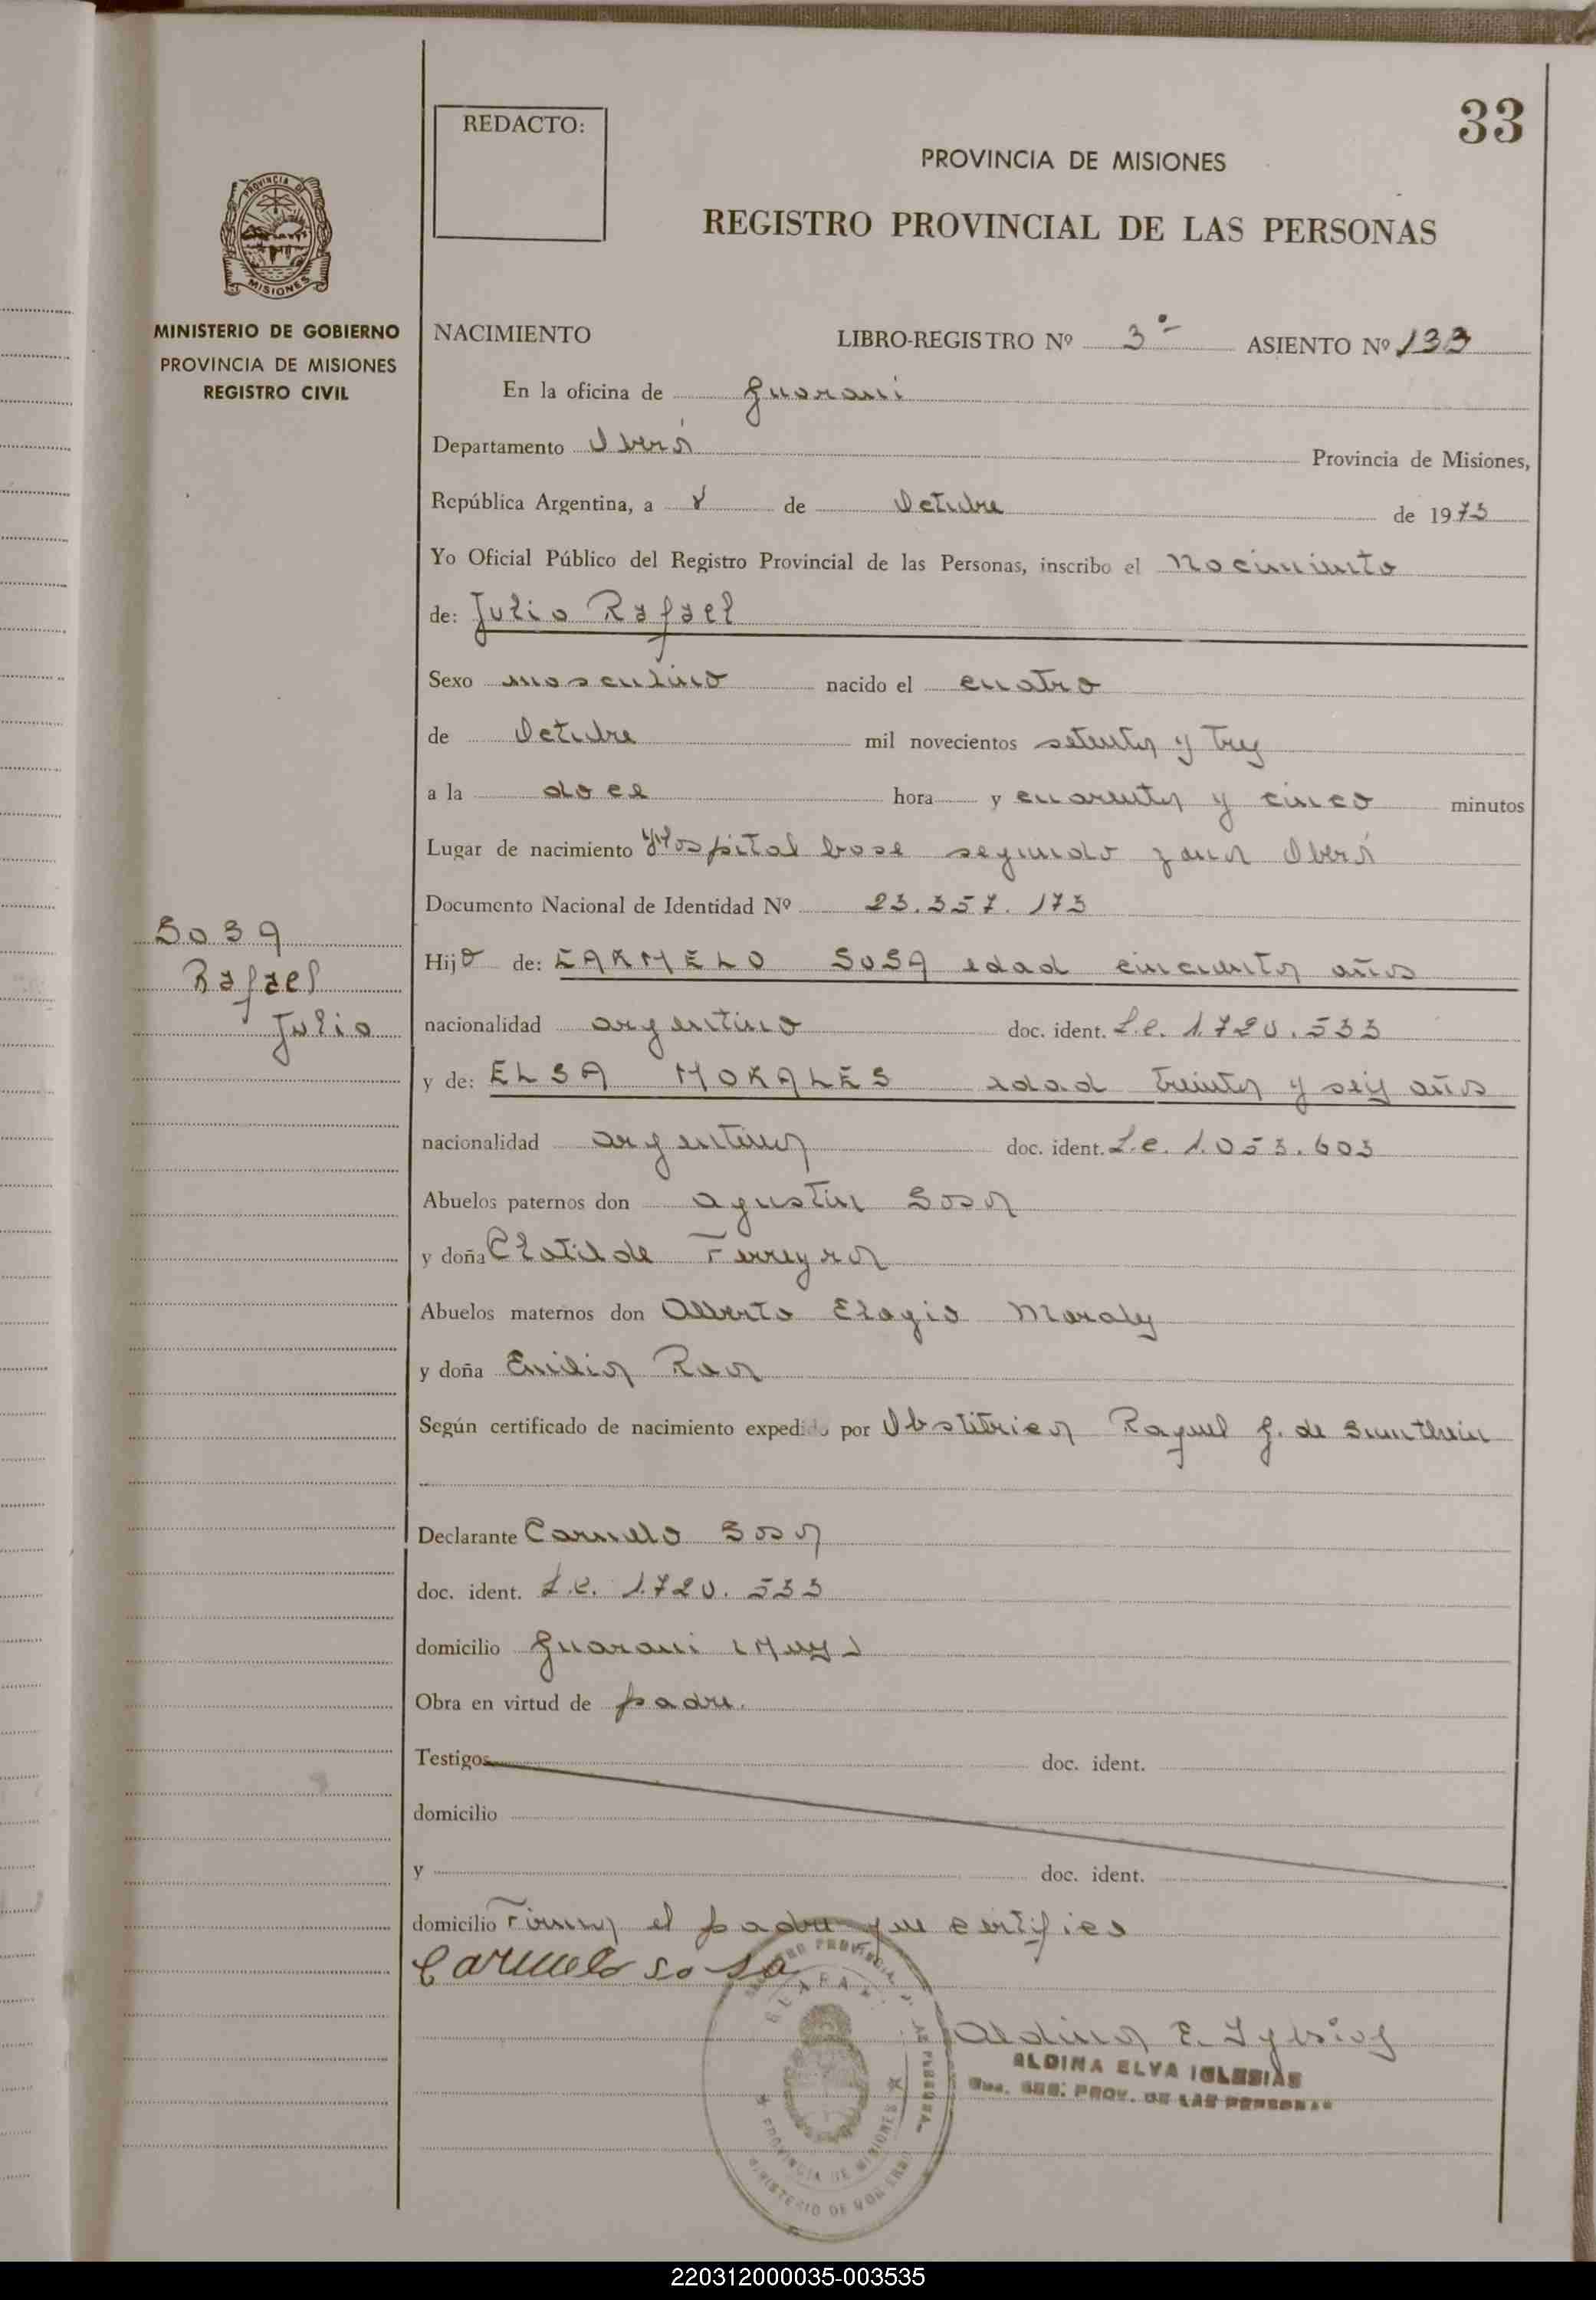 33
REDACTO:
PROVINCIA DE MISIONES
REGISTRO PROVINCIAL DE LAS PERSONAS
PROVINCIA DE
MISIONES
MINISTERIO DE GOBIERNO
PROVINCIA DE MISIONES
REGISTRO CIVIL
NACIMIENTO LIBRO-REGISTRO Nº 3º ASIENTO Nº 133
En la oficina de Guarani
Departamento Oberá Provincia de Misiones,
República Argentina, a 8 de Octubre de 1973
Yo Oficial Público del Registro Provincial de las Personas, inscribo el Nacimiento
de: Julio Rafael
Sexo masculino nacido el cuatro
de Octubre mil novecientos setenta y tres
a la doce hora y cuarenta y cinco minutos
Lugar de nacimiento Hospital base segunda zona Oberá
Documento Nacional de Identidad Nº 23.357.173
SOSA
Rafael
Julio
Hijo de: CARMELO SOSA edad cincuenta años
nacionalidad argentino doc. ident. L.e. 1.720.533
y de: ELSA MORALES edad treinta y seis años
nacionalidad argentina doc. ident. L.e. 1.053.603
Abuelos paternos don Agustin Sosa
y doña Clotilde Ferreyra
Abuelos maternos don Alberto Elogio Morales
y doña Emilia Roa
Según certificado de nacimiento expedido por Obstetrica Raquel G. de
Declarante Carmelo Sosa
doc. ident. L.e. 1.720.533
domicilio Guarani (Mnes)
Obra en virtud de padre.
Testigos doc. ident.
domicilio
y doc. ident.
domicilio Firma el padre que certifica
Carmelo sosa
Aldina E. Iglesias
ALDINA ELVA IGLESIAS
REG. PROV. DE LAS PERSONAS
PROVINCIA DE MISIONES
MINISTERIO DE GOBIERNO
220312000035-003535